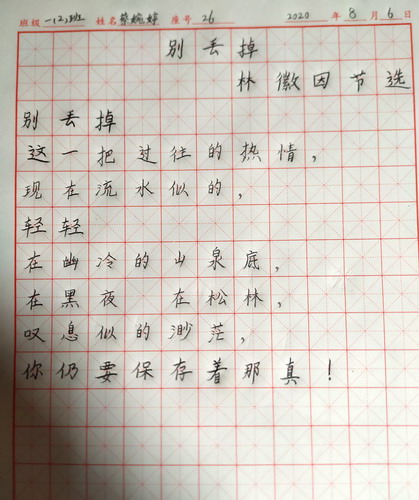 班级 一(2)班 姓名 蔡婉婷 座号 26 2020 年 8 月 6 日
别丢掉
林徽因节选
别丢掉
这一把过往的热情,
现在流水似的,
轻轻
在幽冷的山泉底,
在黑夜 在松林,
叹息似的渺茫,
你仍要保存着那真!